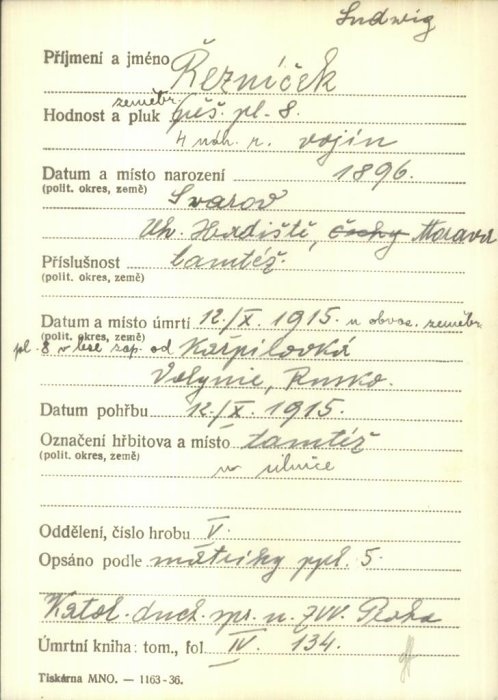 Ludwig
Příjmení a jméno Řezníček
zeměbr.
Hodnost a pluk pěš. pl. 8.
4 náh. r. vojín
Datum a místo narození 1896.
(polit. okres, země) Svarov
Uh. Hradiště, čechy Morava
Příslušnost tamtéž.
(polit. okres, země)
Datum a místo úmrtí 12./X. 1915. u obvaz. zeměbr.
(polit. okres, země)
pl. 8 v lese záp. od Karpilovká
Volynie, Rusko.
Datum pohřbu 12./X. 1915.
Označení hřbitova a místo tamtéž
(polit. okres, země) u silnice
Oddělení, číslo hrobu V.
Opsáno podle matriky ppl. 5.
Katol. duch. spr. u ZVV. Praha
Úmrtní kniha: tom., fol. IV. 134.
Tiskárna MNO. — 1163-36.